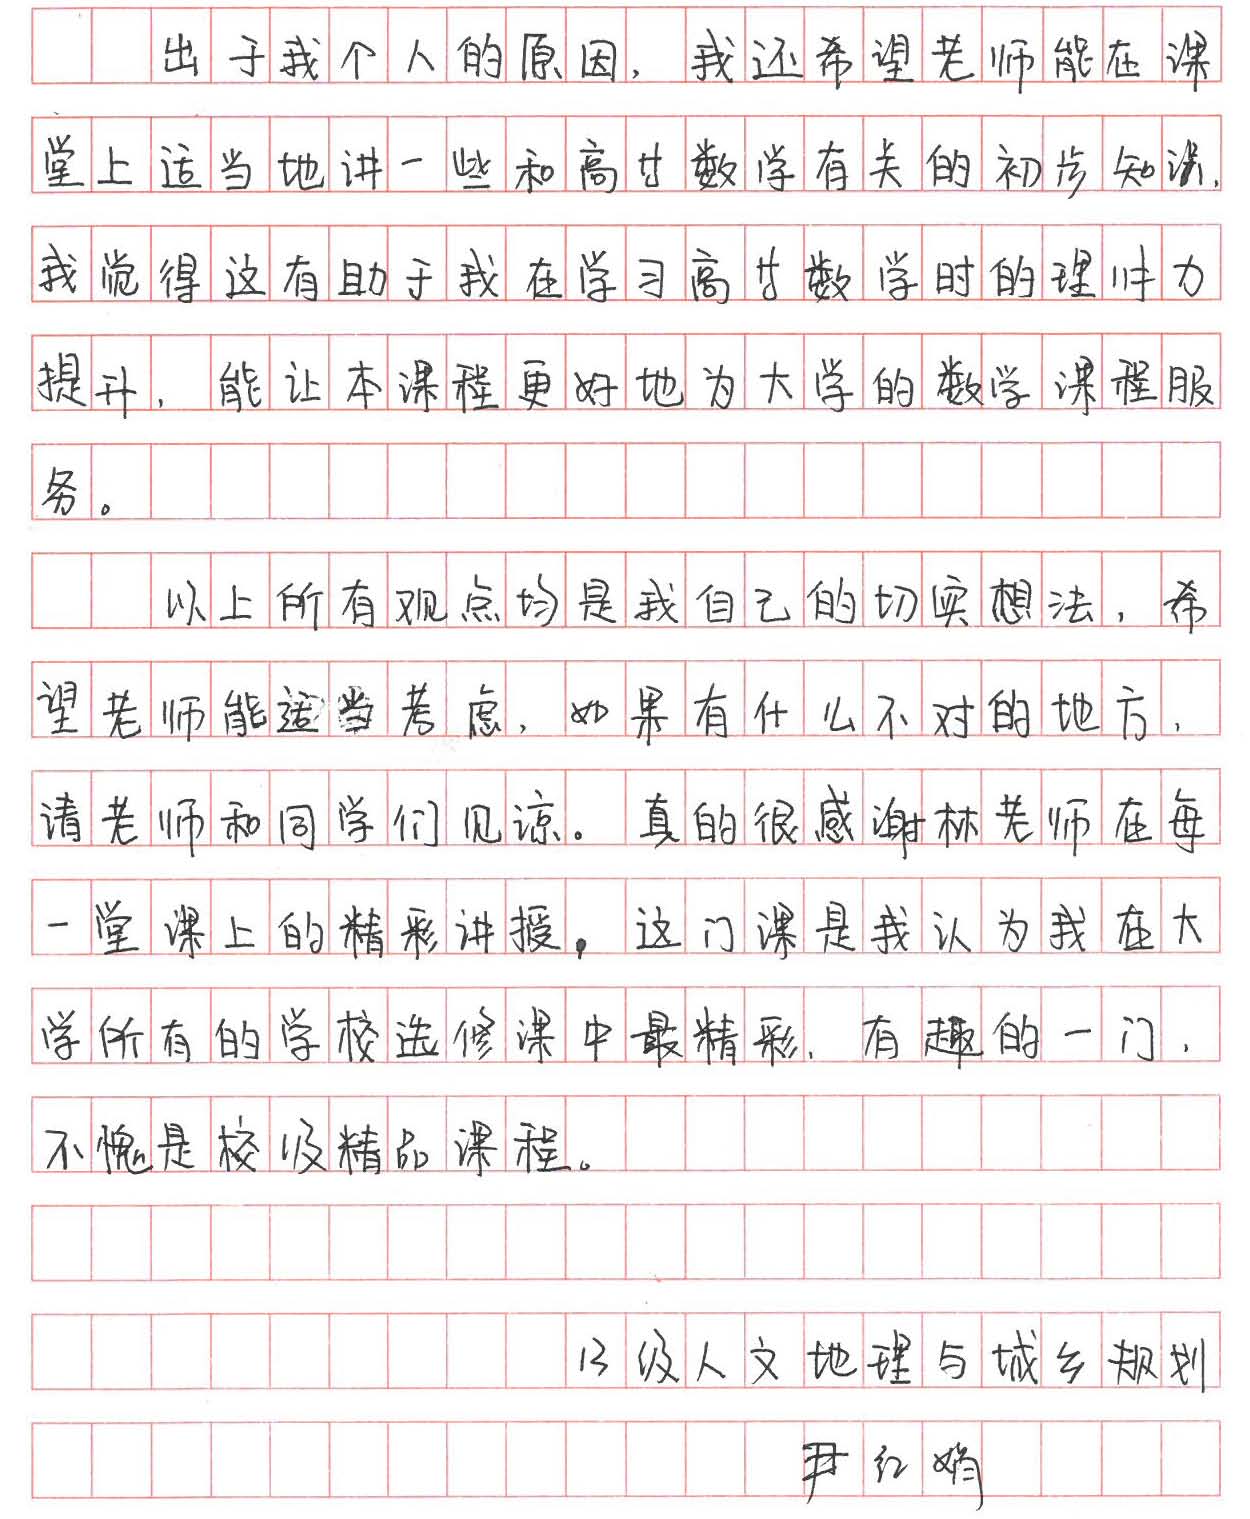 出于我个人的原因，我还希望老师能在课
堂上适当地讲一些和高等数学有关的初步知识，
我觉得这有助于我在学习高等数学时的理解力
提升，能让本课程更好地为大学的数学课程服
务。
以上所有观点均是我自己的切实想法，希
望老师能适当考虑，如果有什么不对的地方，
请老师和同学们见谅。真的很感谢林老师在每
一堂课上的精彩讲授，这门课是我认为我在大
学所有的学校选修课中最精彩、有趣的一门，
不愧是校级精品课程。
13级人文地理与城乡规划
尹红娟